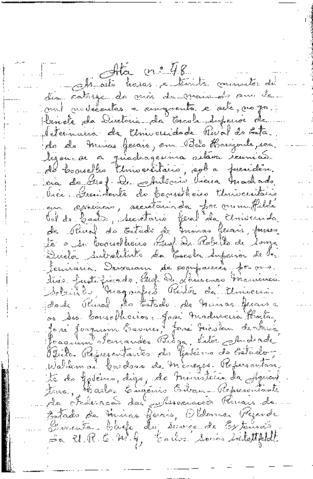 Ata nº 48
Às oito horas e trinta minutos do
dia catorze do mês de maio do ano de
mil novecentos e cinquenta e sete, no ga-
binete da Diretoria da Escola Superior de
Veterinária da Universidade Rural do Esta-
do de Minas Gerais, em Belo Horizonte, rea-
lizou-se a quadragésima oitava reunião
do Conselho Universitário, sob a presidên-
cia do Prof. Dr. Antônio Vieira Machado,
Vice-Presidente do Conselho Universitário
em exercício, secretariada por mim,
de Castro, Secretário Geral da Universida-
de Rural do Estado de Minas Gerais, presen-
te o Sr. Conselheiro Prof. Dr. Roberto de Souza
Diretor Substituto da Escola Superior de Ve-
terinária. Deixaram de comparecer por mo-
tivo justificado, Prof. Dr. Lourenço Menicucci
Sobrinho, Magnífico Reitor da Universi-
dade Rural do Estado de Minas Gerais e
os Srs. Conselheiros: José Madureira Horta,
José Joaquim José Nicolau
Joaquim Fernandes Braga, Andrade
Representantes do Governo do Estado
Waldemar Cardoso de Menezes, Representan-
te do Governo, digo, do Ministério da Agricul-
tura, Eugênio Representante
da Federação das Associações Rurais do
Estado de Minas Gerais, Rezende
Pimenta Chefe do Serviço de Extensão
da U.R.E.M.G, Carlos Socias Schlottfeldt